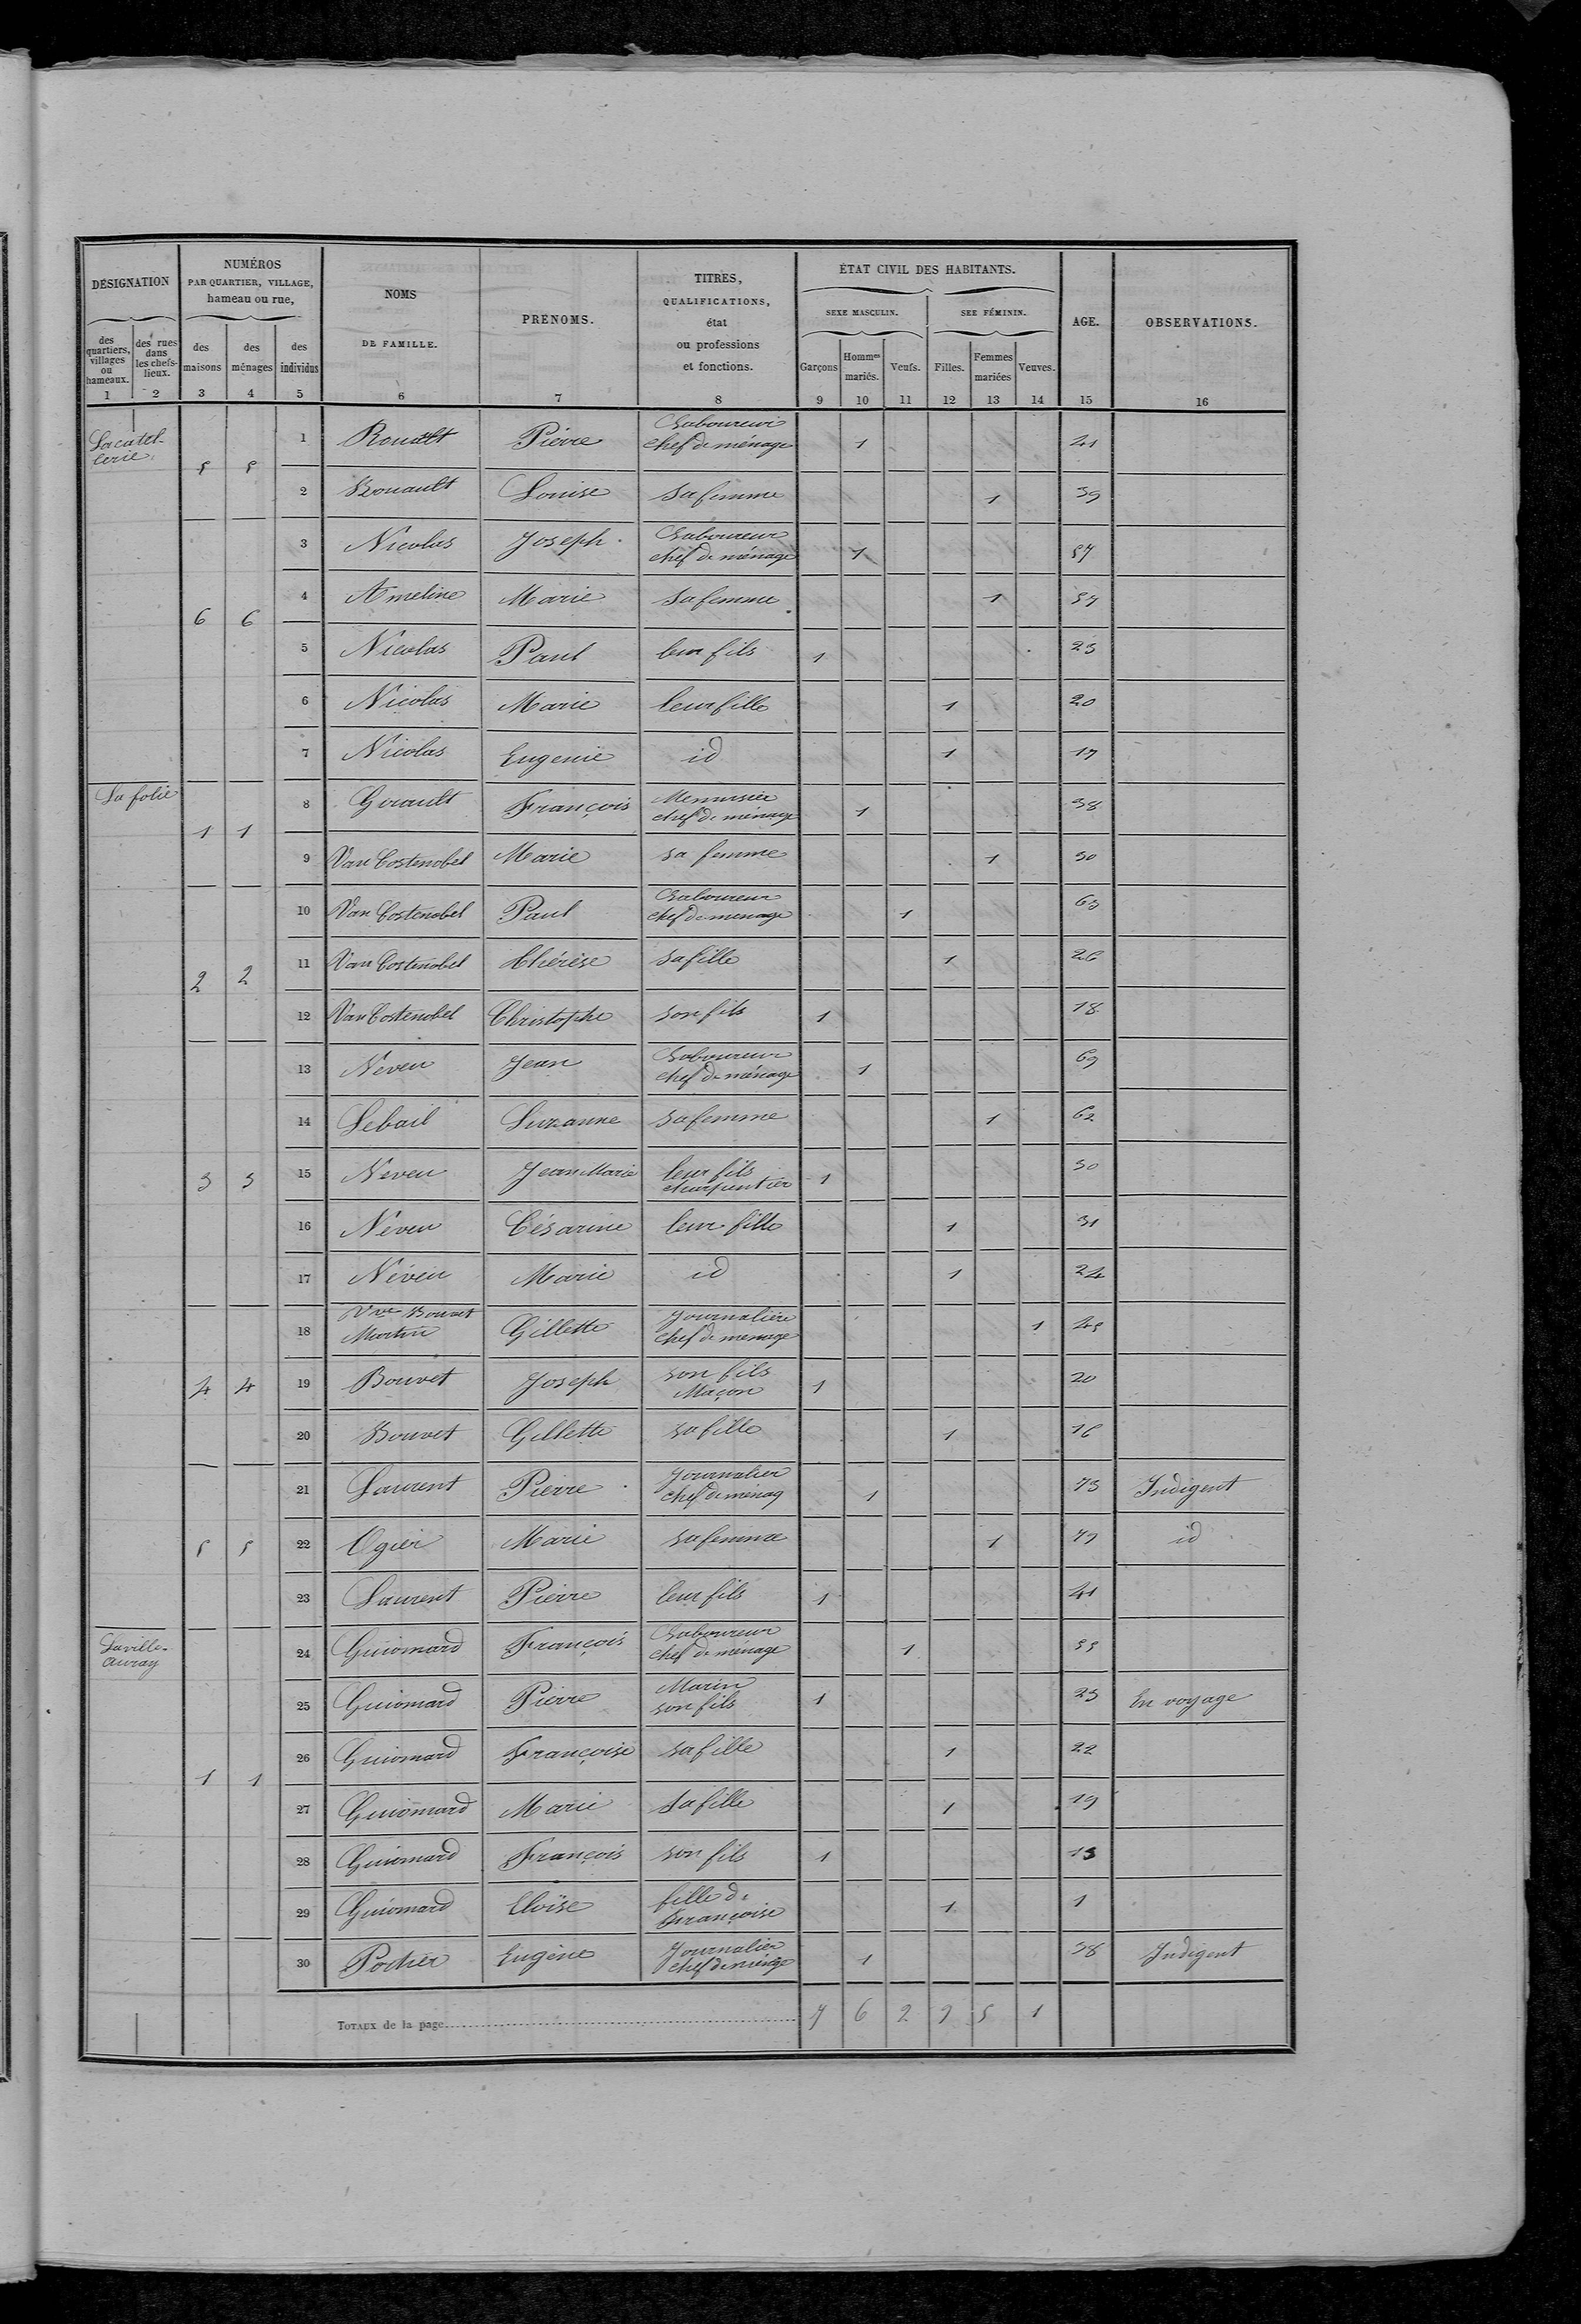 DÉSIGNATION
des quartiers, villages ou hameaux.
des rues dans les chefs-lieux.
NUMÉROS
PAR QUARTIER, VILLAGE,
hameau ou rue,
des maisons
des ménages
des individus
NOMS
DE FAMILLE.
PRENOMS.
TITRES,
QUALIFICATIONS,
état
ou professions
et fonctions.
ÉTAT CIVIL DES HABITANTS.
SEXE MASCULIN.
SEE FÉMININ.
Garçons
Hommes mariés.
Veufs.
Filles.
Femmes mariées
Veuves.
AGE.
OBSERVATIONS.
1 2 3 4 5 6 7 8 9 10 11 12 13 14 15 16
Lacatel-
lerie
5 5
1 Rouault Pierre Laboureur chef de ménage 1 41
2 Rouault Louise sa femme 1 39
3 Nicolas Joseph Laboureur chef de ménage 1 57
6 6
4 Ameline Marie sa femme 1 57
5 Nicolas Paul leur fils 1 23
6 Nicolas Marie leur fille 1 20
7 Nicolas Eugenie id 1 17
La folie
1 1
8 Girault François Menuisier chef de ménage 1 38
9 Van Costenobel Marie sa femme 1 30
2 2
10 Van Costenobel Paul Laboureur chef de menage 1 63
11 Van Costenobel Thérèse sa fille 1 26
12 Van Costenobel Christophe son fils 1 18
13 Neveu Jean Laboureur chef de ménage 1 69
14 Lebail Suzanne sa femme 1 62
3 3
15 Neveu Jean Marie leur fils charpentier 1 30
16 Neveu Césarine leur fille 1 31
17 Neveu Marie id 1 24
18 Vve Bouvet Martin Gillette Journalière chef de menage 1 45
4 4
19 Bouvet Joseph son fils Maçon 1 20
20 Bouvet Gillette sa fille 1 16
21 Laurent Pierre Journalier chef de ménag 1 73 Indigent
5 5
22 Ogier Marie sa femme 1 id
23 Laurent Pierre leur fils 1 41
Laville-
auray
24 Guiomard François Laboureur chef de ménage 1 55
25 Guiomard Pierre Marin son fils 1 23 En voyage
1 1
26 Guiomard Françoise sa fille 1 22
27 Guiomard Marie sa fille 1 19
28 Guiomard François son fils 1 13
29 Guiomard Eloïse fille de Françoise 1 1
30 Potier Eugène Journalier chef de ménage 1 38 Indigent
TOTAUX de la page 7 6 2 9 5 1